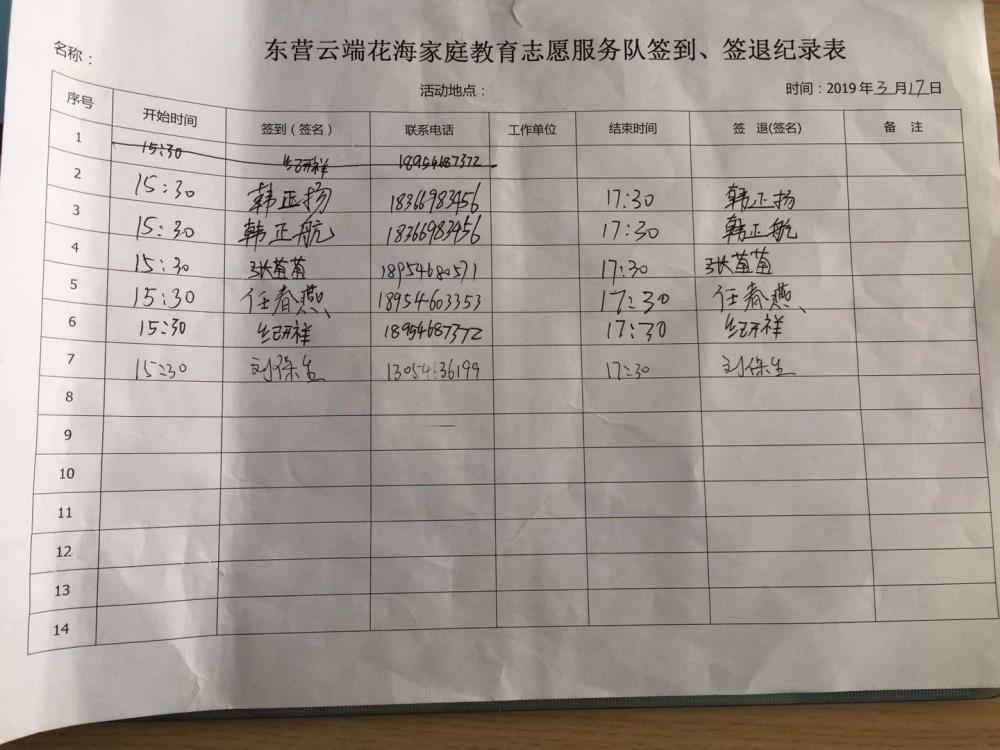 东营云端花海家庭教育志愿服务队签到、签退纪录表
名称：
活动地点： 时间：2019年3月17日
序号 开始时间 签到（签名） 联系电话 工作单位 结束时间 签 退(签名) 备 注
1 15:30 纪研祥 18954687372
2 15:30 韩正扬 18366983456 17:30 韩正扬
3 15:30 韩正航 18366983456 17:30 韩正航
4 15:30 张苗苗 18954680571 17:30 张苗苗
5 15:30 任春燕 18954603353 17:30 任春燕
6 15:30 纪研祥 18954687372 17:30 纪研祥
7 15:30 刘保生 13054636199 17:30 刘保生
8
9
10
11
12
13
14